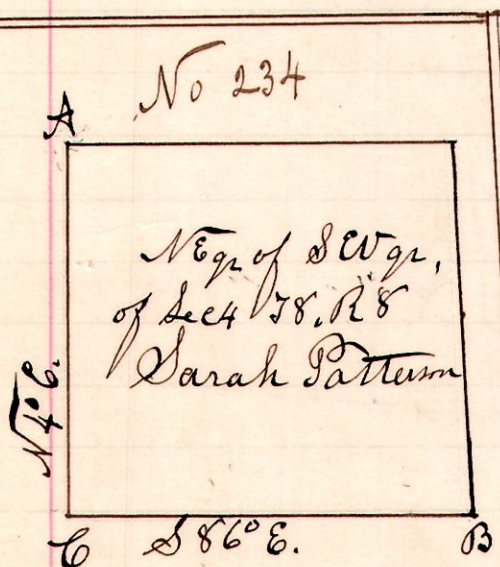 No 234
A
NEqr of SWqr,
of Sec4 T8, R8
Sarah Patterson
N4°E.
C S86°E. B